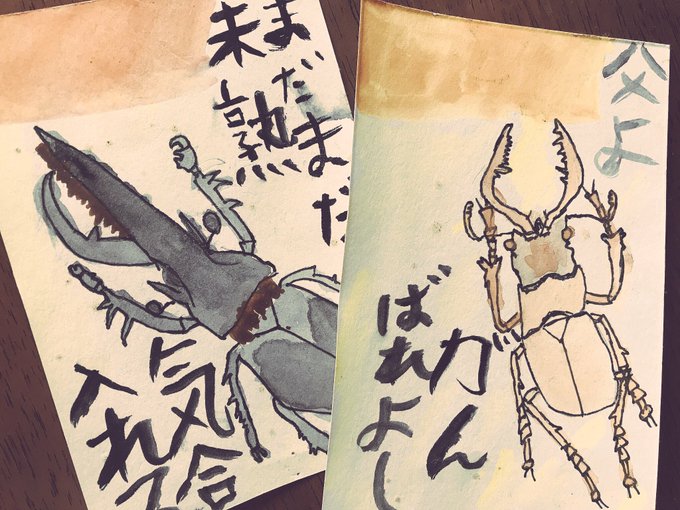 まだまだ
未熟
気合
入れ
父よ
がん
ばれよし